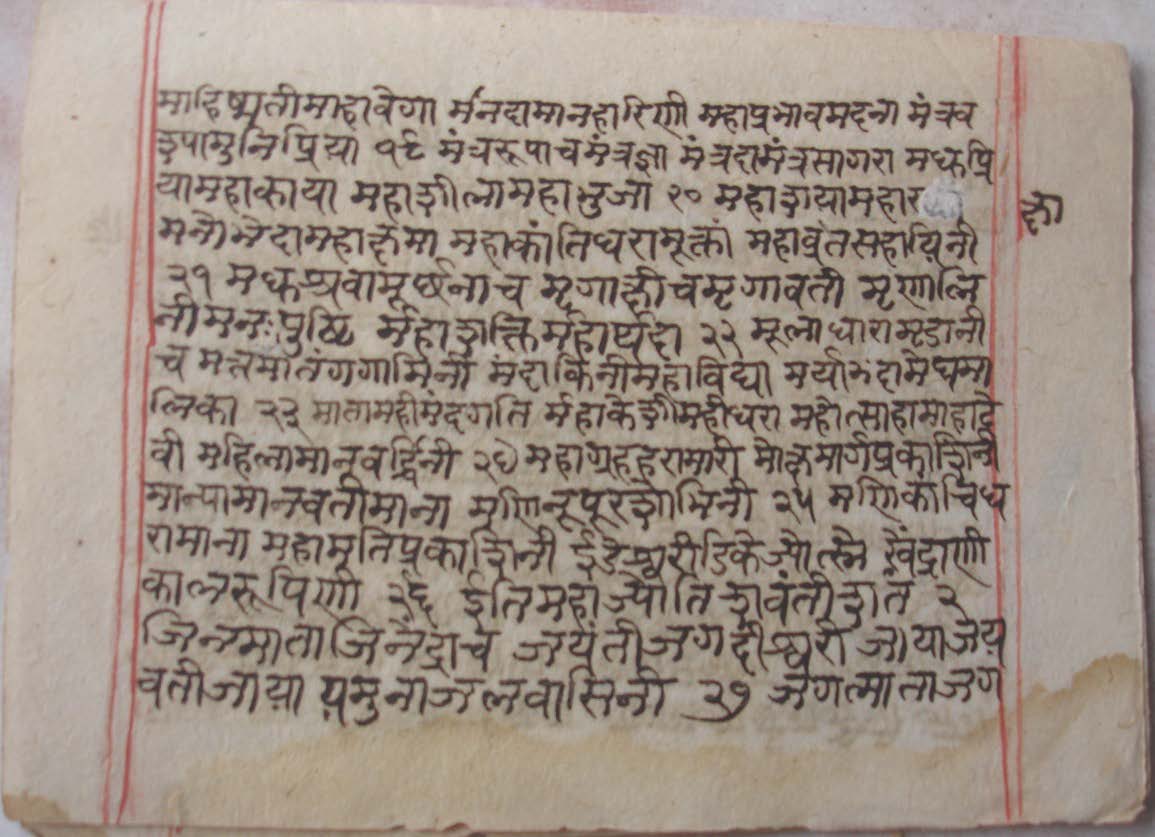 माहिष्मतीमाहावेगा र्मनदामानहारिणी महाप्रभावमदना मंत्रव
श्यामुनिप्रिया १९ मंत्ररूपाचमंत्रज्ञा मंत्रदामंत्रसागरा मधुप्रि
यामहाकाया महाशीलामहाभुजा २० महाशयामहार
क्षो
मनोभेदामहाक्षमा महाकांतिधरामूक्तां महाव्रतसहायिनी
२१ मधुश्रवामूर्छनाच मृगाक्षीचमृगावती मृणालि
नीमनःपुष्टि र्महाशक्तिर्महार्थदा २२ मूलाधारामृडानी
च मत्तमातंगगामिनी मंदाकिनीमहाविद्या मर्यादामेघमा
लिका २३ मातामहीमंदगति र्महाकेशीमहीधरा महोत्साहामाहादे
वी महिलामानवर्द्धिनी २४ महाग्रहहरामारी मोक्षमार्गप्रकाशिनी
मान्यामानवतीमाना मणिनूपूरशोभिनी २५ मणिकांचिध
रामाना महामूतिप्रकाशिनी ईडेश्वरीडिकेज्योत्स्ने
कालरूपिणी २६ इतिमहाज्योतिशवंतीशतं २
जिनमाताजिनेंद्राच जयंतीजगदीश्वरी जायाजय
वतीजाया यमुनाजलवासिनी २७ जगत्माताजग